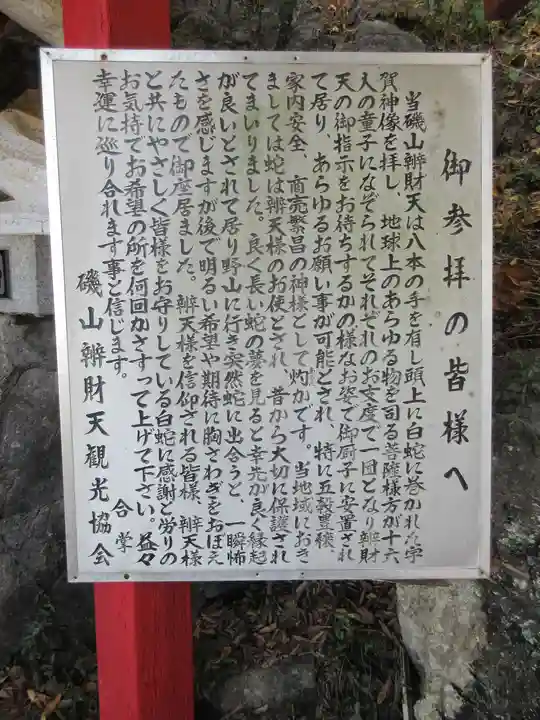 御参拝の皆様へ
当磯山辨財天は八本の手を有し頭上に白蛇に巻かれた宇
賀神像を拝し、地球上のあらゆる物を司る菩薩様方が十六
人の童子になぞられてそれぞれのお支度で一団となり辨財
天の御指示をお待ちするかの様なお姿で御厨子に安置され
て居り、あらゆるお願い事が可能とされ、特に五穀豊穣、
家内安全、商売繁昌の神様として灼かです。当地域におき
ましては蛇は辨天様のお使とされ、昔から大切に保護され
てまいりました。良く長い蛇の夢を見ると幸先が良く縁起
が良いとされて居り野山に行き突然蛇に出合うと、一瞬怖
さを感じますが後で明るい希望や期待に胸さわぎをおぼえ
たもので御座居ました。辨天様を信仰される皆様、辨天様
と共にやさしく皆様をお守りしている白蛇に感謝と労りの
お気持でお希望の所を何回かさすって上げて下さい。益々
幸運に巡り合れます事と信じます。
合掌
磯山辨財天観光協会